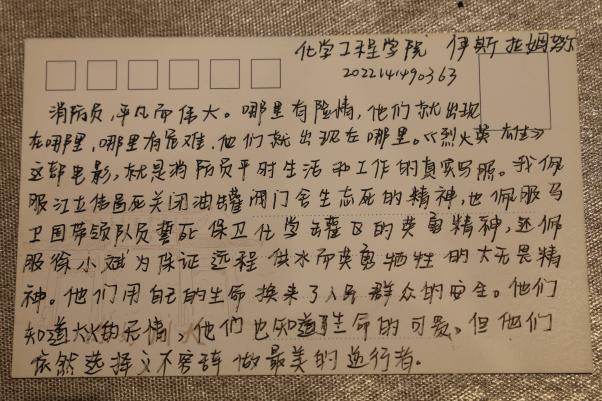 化学工程学院 伊斯拉姆江
消防员,平凡而伟大。哪里有险情,他们就出现
在哪里,哪里有危难,他们就出现在哪里。《烈火英雄》
这部电影,就是消防员平时生活和工作的真实写照。我佩
服江立伟冒死关闭油罐阀门舍生忘死的精神,也佩服马
卫国带领队员誓死保卫化学罐区的英勇精神,还佩
服徐小斌为保证远程供水而英勇牺牲的大无畏精
神。他们用自己的生命换来了人民群众的安全。他们
知道大火的无情,他们也知道生命的可贵。但他们
依然选择义不容辞做最美的逆行者。